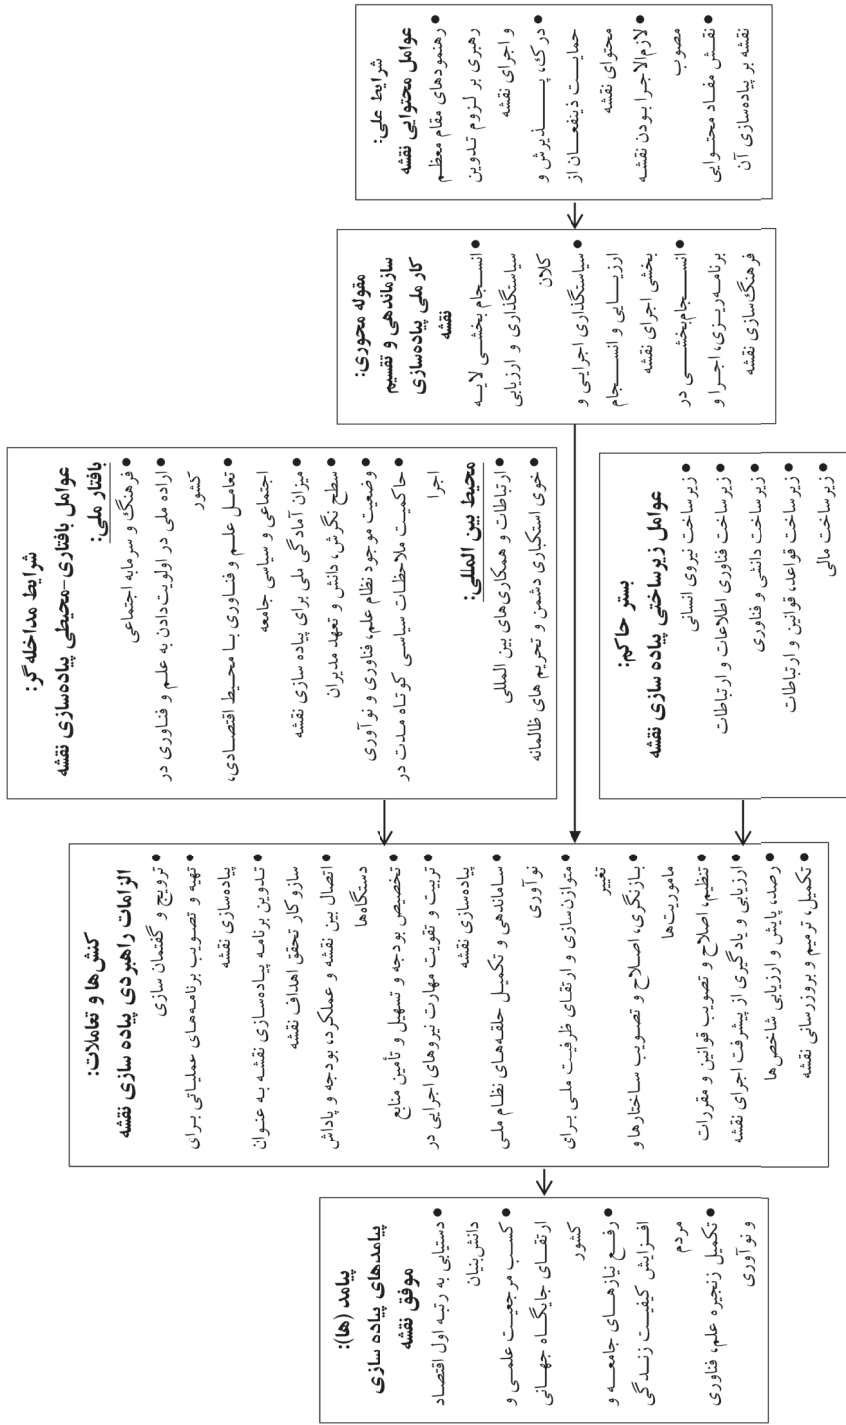 شرایط علی:
عوامل محتوایی نقشه
• رهنمودهای مقام معظم
رهبری بر لزوم تدوین
و اجرای نقشه
• درک، پذیرش و
حمایت ذینفعان از
محتوای نقشه
• لازم‌الاجرا بودن نقشه
مصوب
• نقش مفاد محتوایی
نقشه بر پیاده‌سازی آن
مقوله محوری:
سازماندهی و تقسیم
کار ملی پیاده‌سازی
نقشه
• انسجام بخشی لایه
سیاستگذاری و ارزیابی
کلان
• سیاستگذاری اجرایی و
ارزیابی و انسجام
بخشی اجرای نقشه
• انسجام‌بخشی در
برنامه‌ریزی، اجرا و
فرهنگ‌سازی نقشه
شرایط مداخله‌گر:
عوامل بافتاری-محیطی پیاده‌سازی نقشه
بافتار ملی:
• فرهنگ و سرمایه اجتماعی
• اراده ملی در اولویت‌دادن به علم و فناوری در
کشور
• تعامل علم و فناوری با محیط اقتصادی،
اجتماعی و سیاسی جامعه
• میزان آمادگی ملی برای پیاده سازی نقشه
• سطح نگرش، دانش و تعهد مدیران
• وضعیت موجود نظام علم، فناوری و نوآوری
• حاکمیت ملاحظات سیاسی کوتاه مدت در
اجرا
محیط بین المللی:
• ارتباطات و همکاری‌های بین المللی
• خوی استکباری دشمن و تحریم های ظالمانه
بستر حاکم:
عوامل زیرساختی پیاده سازی نقشه
• زیرساخت نیروی انسانی
• زیرساخت فناوری اطلاعات و ارتباطات
• زیرساخت دانشی و فناوری
• زیرساخت قواعد، قوانین و ارتباطات
• زیرساخت مالی
کنش‌ها و تعاملات:
الزامات راهبردی پیاده سازی نقشه
• ترویج و گفتمان سازی
• تهیه و تصویب برنامه‌های عملیاتی برای
پیاده‌سازی نقشه
• تدوین برنامه پیاده‌سازی نقشه به عنوان
سازوکار تحقق اهداف نقشه
• اتصال بین نقشه و عملکرد، بودجه و پاداش
دستگاه‌ها
• تخصیص بودجه و تسهیل و تأمین منابع
• تربیت و تقویت مهارت نیروهای اجرایی در
پیاده‌سازی نقشه
• ساماندهی و تکمیل حلقه‌های نظام ملی
نوآوری
• متوازن‌سازی و ارتقای ظرفیت ملی برای
تغییر
• بازنگری، اصلاح و تصویب ساختارها و
ماموریت‌ها
• تنظیم، اصلاح و تصویب قوانین و مقررات
• ارزیابی و یادگیری از پیشرفت اجرای نقشه
• رصد، پایش و ارزیابی شاخص‌ها
• تکمیل، ترمیم و بروزرسانی نقشه
پیامد (ها):
پیامدهای پیاده سازی
موفق نقشه
• دستیابی به رتبه اول اقتصاد
دانش‌بنیان
• کسب مرجعیت علمی و
ارتقای جایگاه جهانی
کشور
• رفع نیازهای جامعه و
افزایش کیفیت زندگی
مردم
• تکمیل زنجیره علم، فناوری
و نوآوری